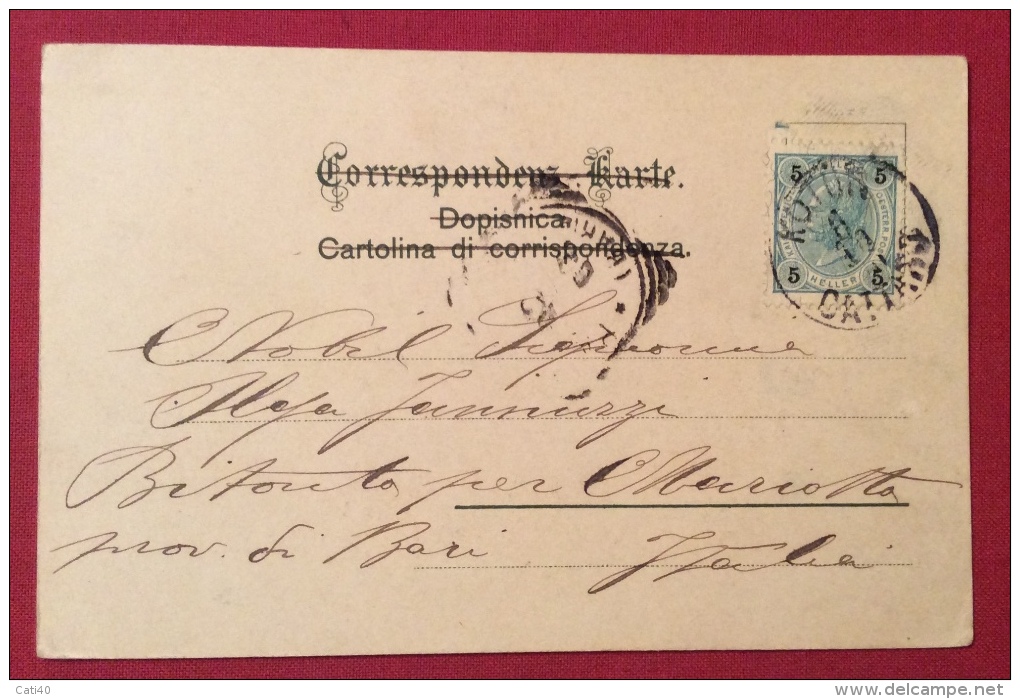 Correspondenz-Karte.
Dopisnica
Cartolina di corrispondenza.
5 5
5 HELLER 5
CATTARO
Nobil Signorina
Iannuzzi
Bitonto per Mariotto
prov. di Bari Italia
Cati40
delcampe.net